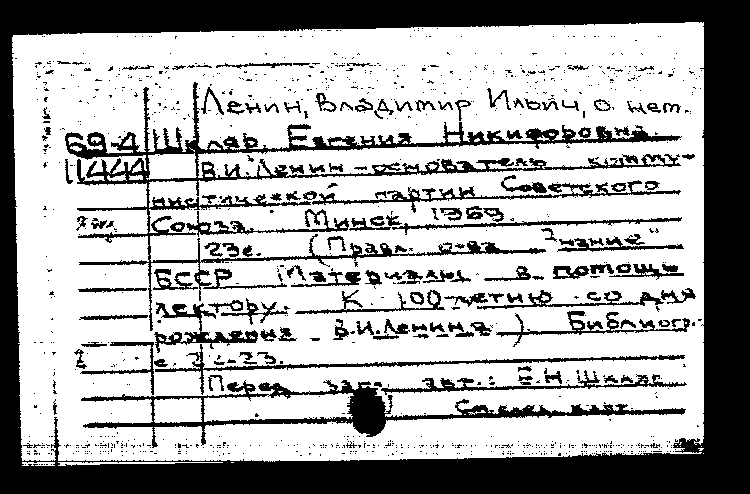 Ленин, Владимир Ильич, о нем.
69-4 Шкляр, Евгения Никифоровна.
11444 В.И. Ленин - основатель комму-
нистической партии Советского
Союза. Минск, 1969.
23с. (Правл. о-ва "Знание"
БССР Материалы в помощь
лектору. К 100-летию со дня
рождения В.И. Ленина ) Библиогр.
с. 22-23.
Перед загл. авт.: Е.Н. Шкляр
См. след. карт.